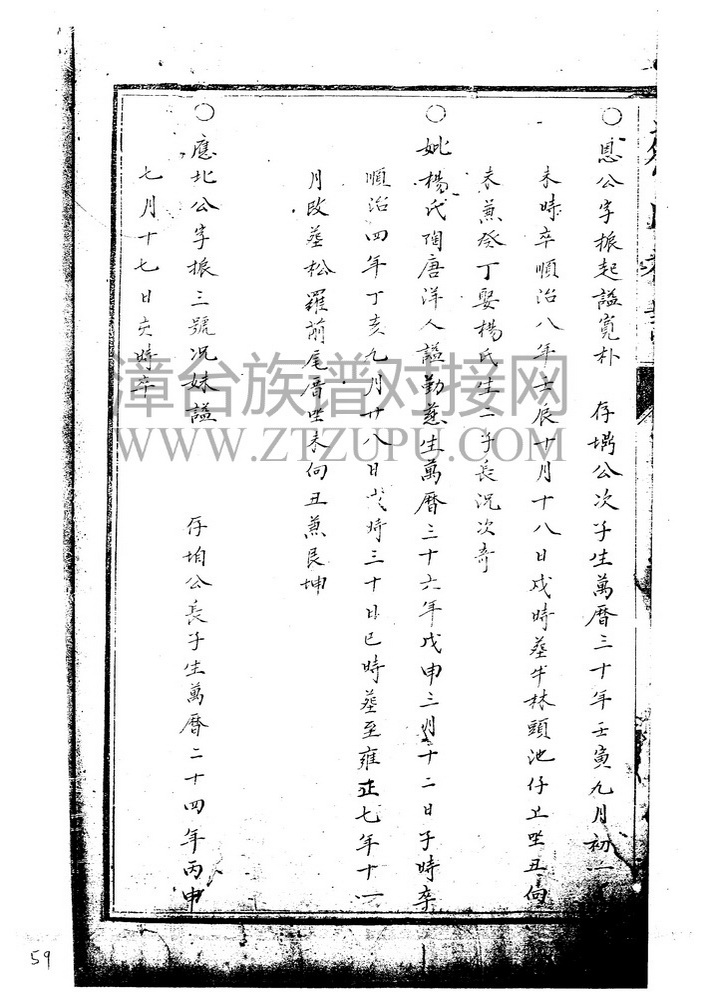 ○恩公字振起諡寬朴 存塝公次子生萬曆三十年壬寅九月初一
未時卒順治八年壬辰十月十八日戌時葬牛林頭池仔上坐丑向
未兼癸丁娶楊氏生二子長況次奇
○妣楊氏陶唐洋人諡勤慈生萬曆三十六年戊申三月十二日子時卒
順治四年丁亥九月廿八日 時三十日巳時葬至雍正七年十一
月改葬松羅前尾厝坐未向丑兼艮坤
○應北公字振三號况妹諡 存垍公長子生萬曆二十四年丙申
七月十七日亥時卒
漳台族谱对接网
WWW.ZTZUPU.COM
59